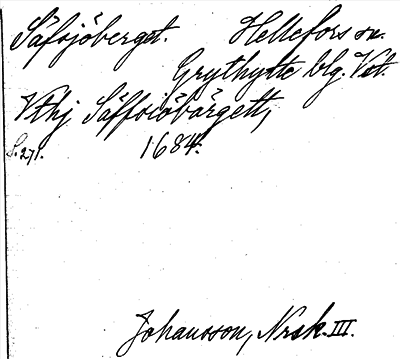 Säfsjöberget. Hellefors sn.
Grythytte blg. Vstm.
Vthj Säffsiöbärgett,
S. 271. 1684.
Johansson, Nrsk. III.